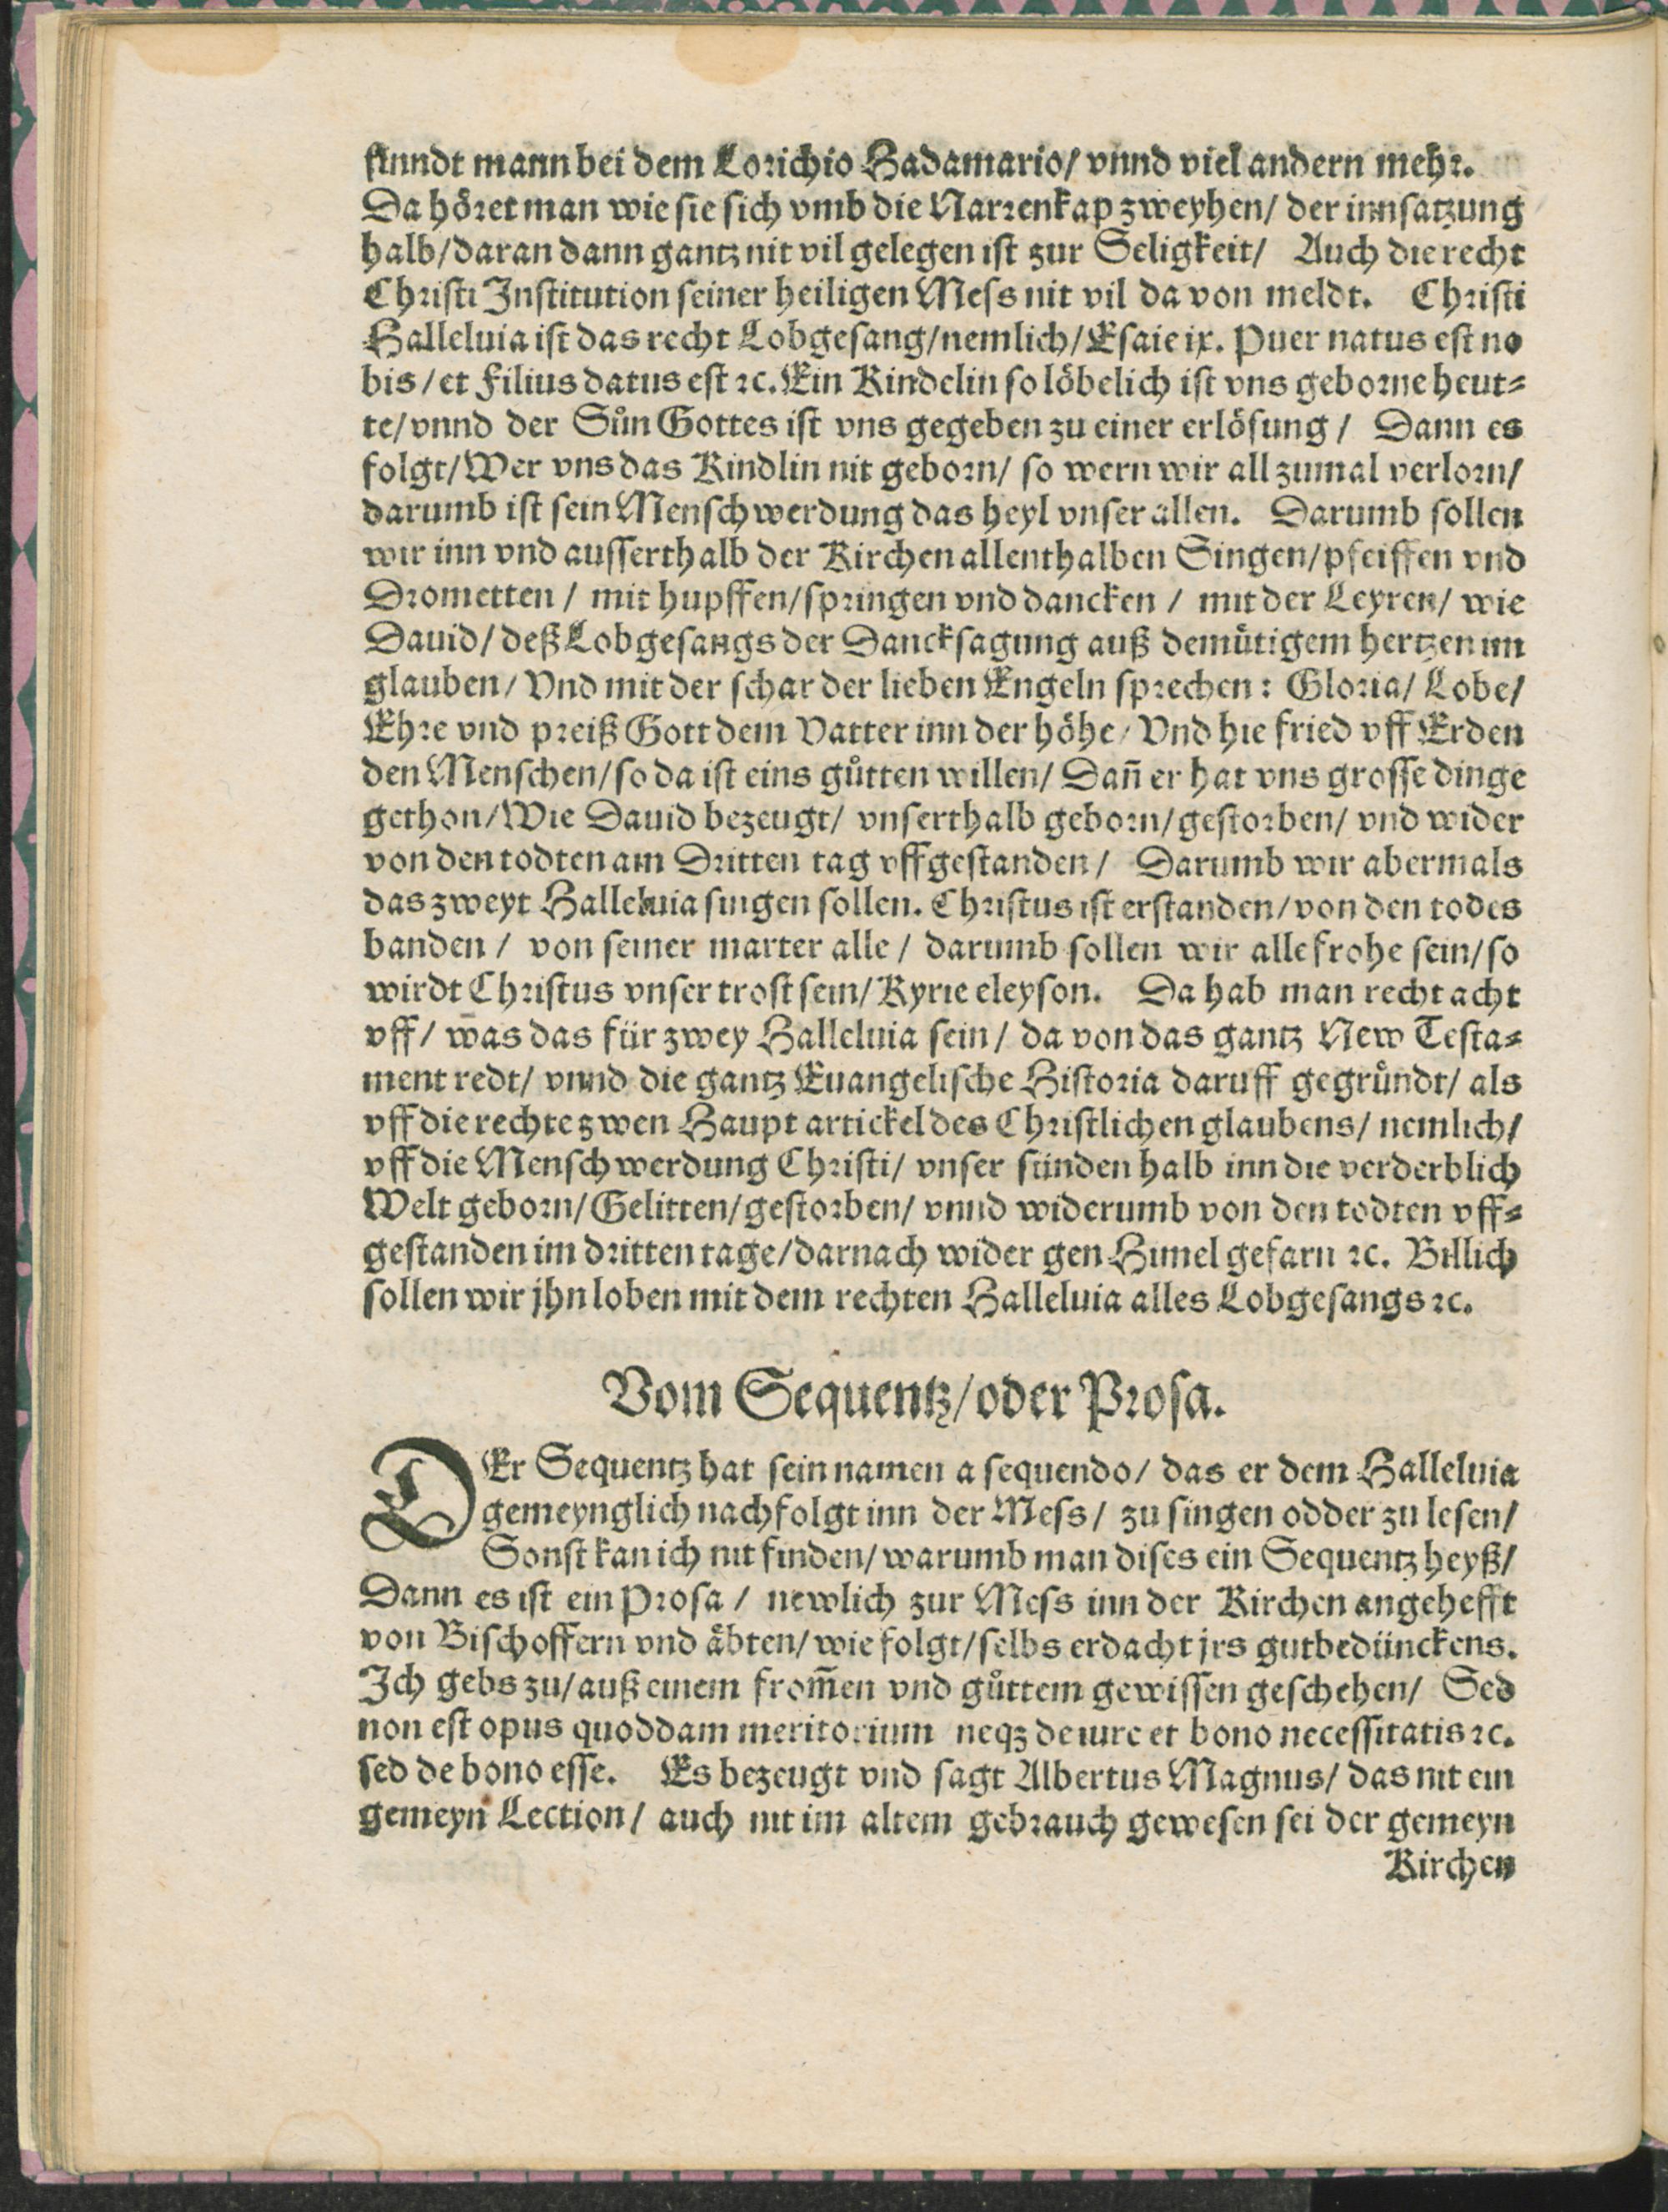 findt mann bei dem Lorichio Hadamario/ vnnd viel andern mehr.
Da höret man wie sie sich vmb die Narrenkap zweyhen/ der innsatzung
halb/ daran dann gantz nit vil gelegen ist zur Seligkeit/ Auch die recht
Christi Institution seiner heiligen Mess nit vil da von meldt. Christi
Halleluia ist das recht Lobgesang/ nemlich/ Esaie ix. Puer natus est no
bis/ et Filius datus est ꝛc. Ein Kindelin so löbelich ist vns geborne heut⸗
te/ vnnd der Sůn Gottes ist vns gegeben zu einer erlösung/ Dann es
folgt/ Wer vns das Kindlin nit geborn/ so wern wir all zumal verlorn/
darumb ist sein Menschwerdung das heyl vnser allen. Darumb sollen
wir inn vnd ausserthalb der Kirchen allenthalben Singen/ pfeiffen vnd
Drometten/ mit hupffen/ springen vnd dancken/ mit der Leyren/ wie
Dauid/ deß Lobgesangs der Dancksagung auß demütigem hertzen im
glauben/ Vnd mit der schar der lieben Engeln sprechen: Gloria/ Lobe/
Ehre vnd preiß Gott dem Vatter inn der höhe/ Vnd hie fried vff Erden
den Menschen/ so da ist eins gůtten willen/ Dañ er hat vns grosse dinge
gethon/ Wie Dauid bezeugt/ vnserthalb geborn/ gestorben/ vnd wider
von den todten am Dritten tag vffgestanden/ Darumb wir abermals
das zweyt Halleluia singen sollen. Christus ist erstanden/ von den todes
banden/ von seiner marter alle/ darumb sollen wir alle frohe sein/ so
wirdt Christus vnser trost sein/ Kyrie eleyson. Da hab man recht acht
vff/ was das für zwey Halleluia sein/ da von das gantz New Testa⸗
ment redt/ vnnd die gantz Euangelische Historia daruff gegründt/ als
vff die rechte zwen Haupt artickel des Christlichen glaubens/ nemlich/
vff die Menschwerdung Christi/ vnser sünden halb inn die verderblich
Welt geborn/ Gelitten/ gestorben/ vnnd widerumb von den todten vff⸗
gestanden im dritten tage/ darnach wider gen Himel gefarn ꝛc. Billich
sollen wir jhn loben mit dem rechten Halleluia alles Lobgesangs ꝛc.
Vom Sequentz/ oder Prosa.
DEr Sequentz hat sein namen a sequendo/ das er dem Halleluia
gemeynglich nachfolgt inn der Mess/ zu singen odder zu lesen/
Sonst kan ich nit finden/ warumb man dises ein Sequentz heyß/
Dann es ist ein Prosa/ newlich zur Mess inn der Kirchen angehefft
von Bischoffern vnd äbten/ wie folgt/ selbs erdacht jrs gutbedünckens.
Ich gebs zu/ auß einem from̃en vnd gůttem gewissen geschehen/ Sed
non est opus quoddam meritorium neqꝫ de iure et bono necessitatis ꝛc.
sed de bono esse. Es bezeugt vnd sagt Albertus Magnus/ das nit ein
gemeyn Lection/ auch nit im altem gebrauch gewesen sei der gemeyn
Kirchen